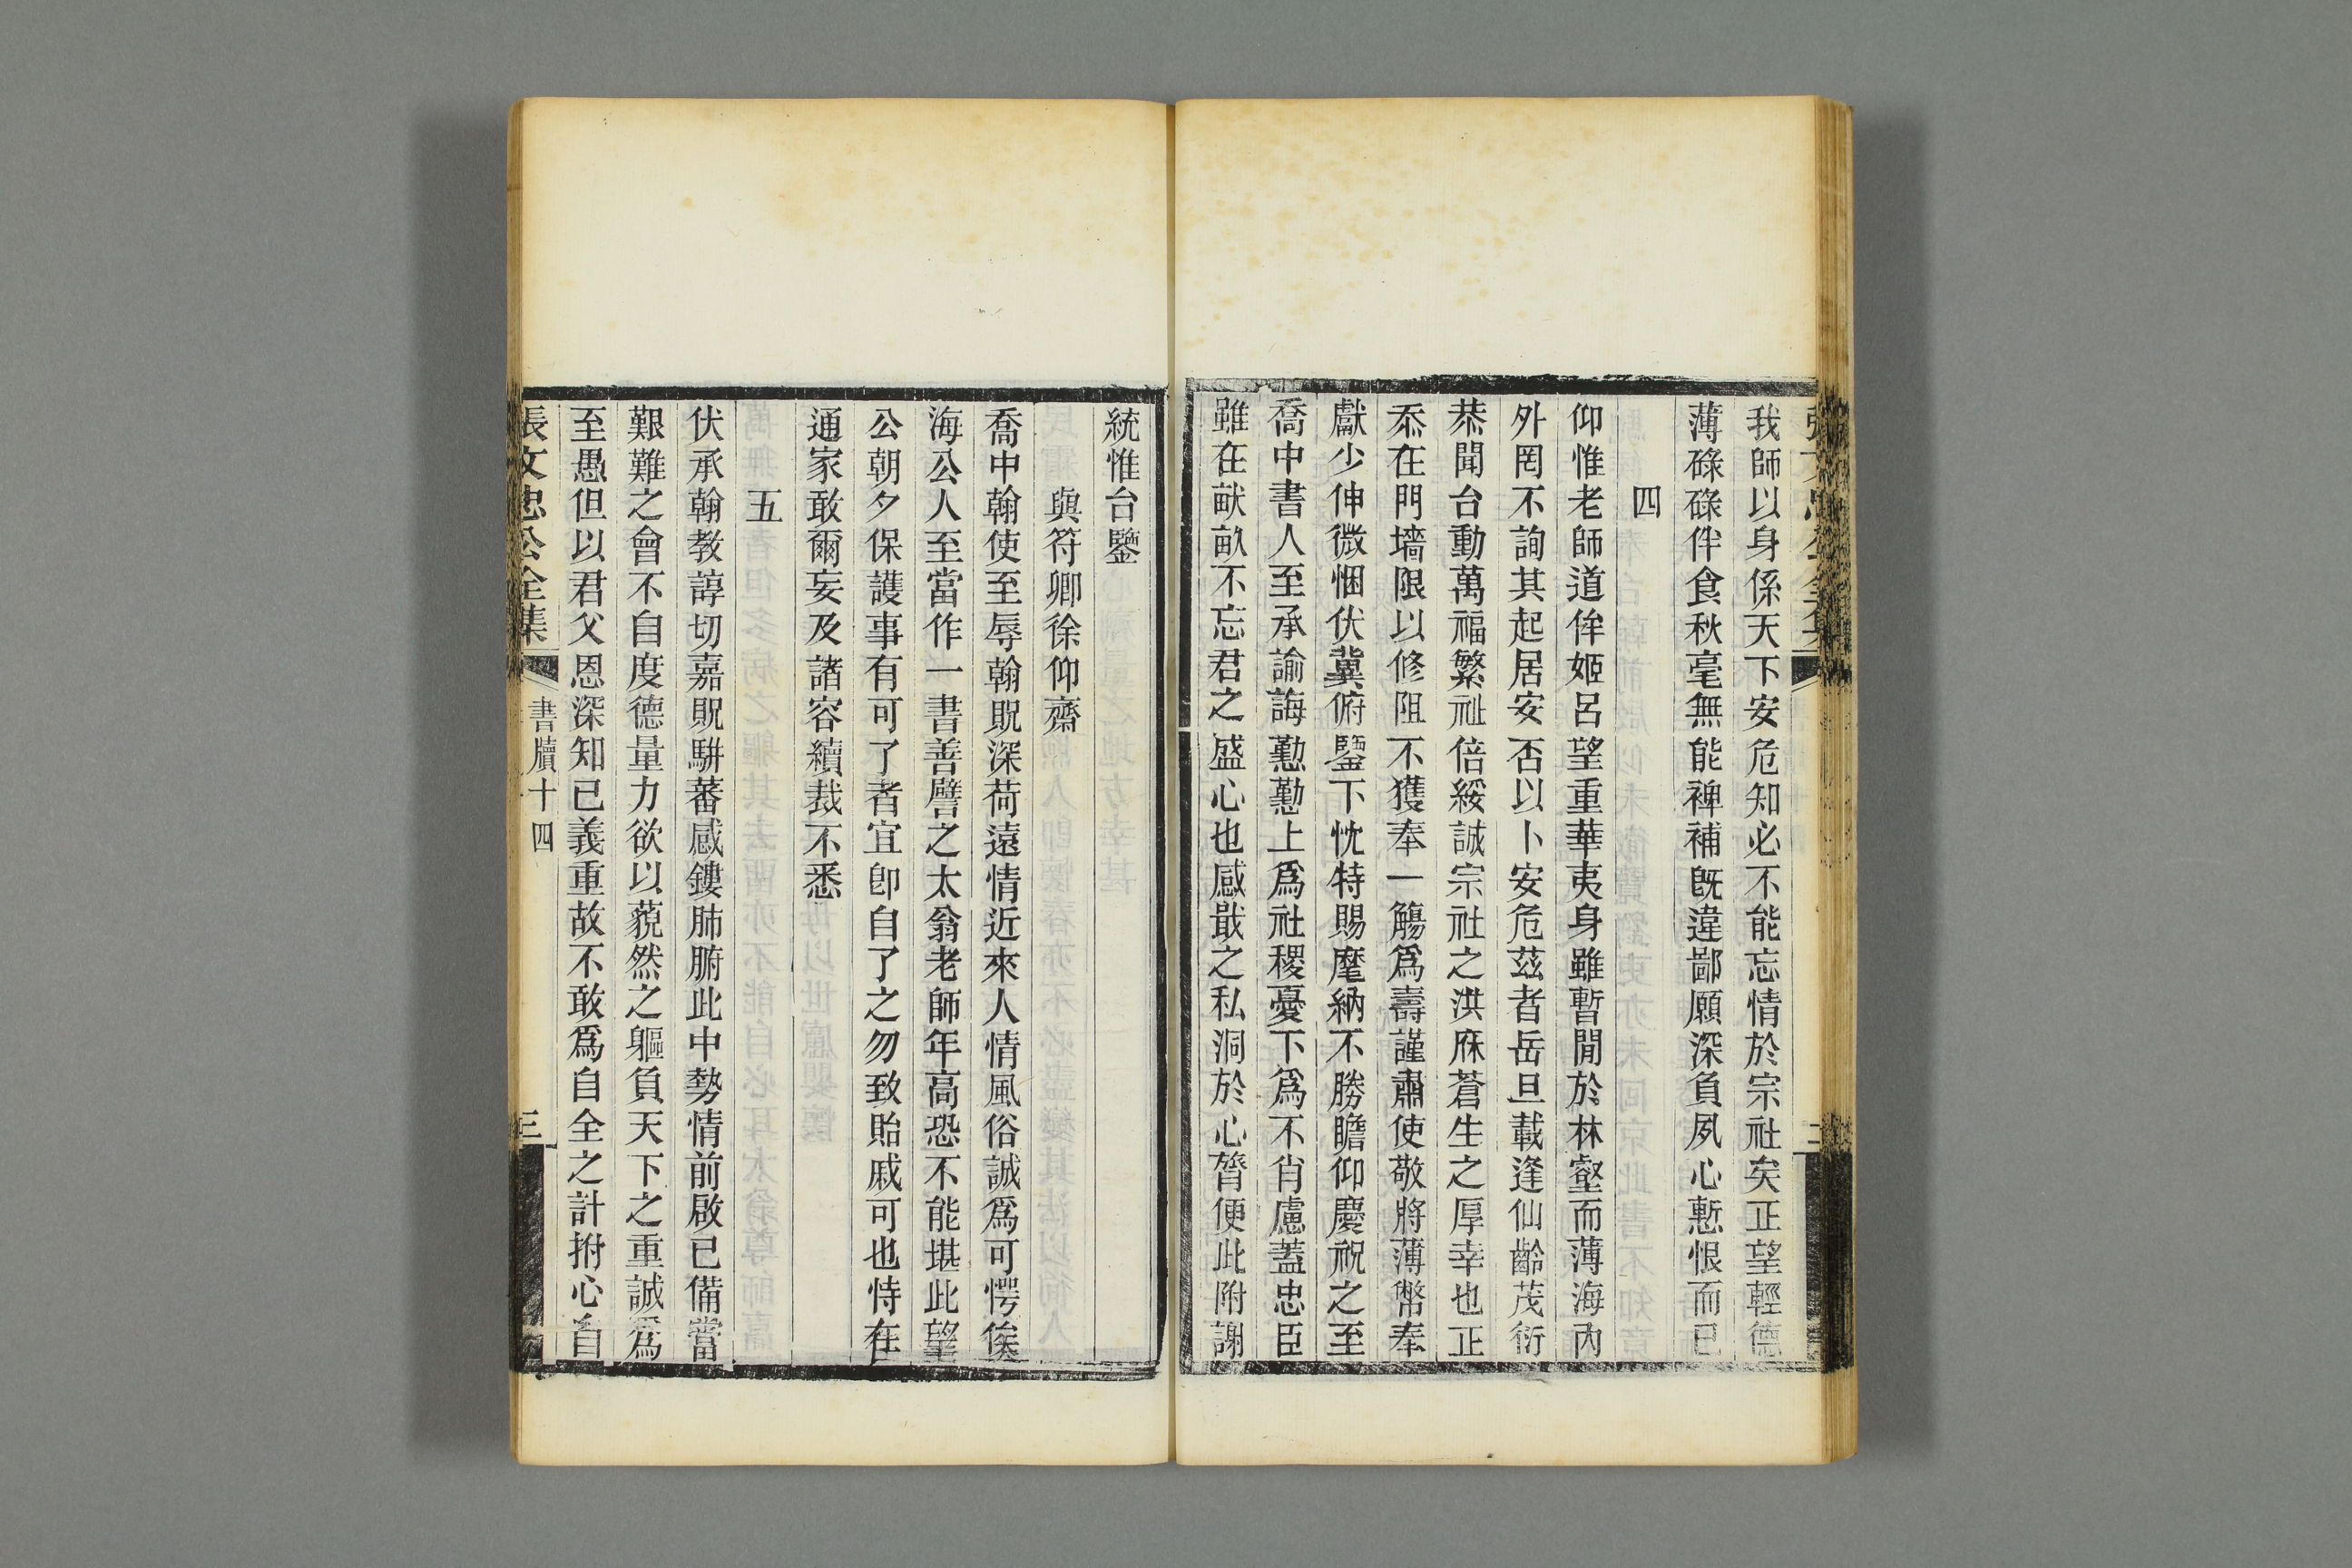 我師以身係天下安危知必不能忘情於宗社矣正望輕德
薄碌碌伴食秋毫無能裨補既違鄙願深負夙心慙恨而已
四
仰惟老師道侔姬呂望重華夷身雖暫閒於林壑而薄海內
外罔不詢其起居安否以卜安危茲者岳旦載逢仙齡茂衍
恭聞台動萬福繁祉倍綏誠宗社之洪庥蒼生之厚幸也正
忝在門墻限以修阻不獲奉一觴爲壽謹肅使敬將薄幣奉
獻少伸微悃伏冀俯鑒下忱特賜麾納不勝瞻仰慶祝之至
喬中書人至承諭誨懃懃上爲社稷憂下爲不肖慮蓋忠臣
雖在畎畝不忘君之盛心也感戢之私洞於心膂便此附謝
統惟台鑒
與符卿徐仰齋
喬中翰使至辱翰貺深荷遠情近來人情風俗誠爲可愕俟
海公人至當作一書善譬之太翁老師年高恐不能堪此望
公朝夕保護事有可了者宜卽自了之勿致貽戚可也恃在
通家敢爾妄及諸容續裁不悉
五
伏承翰教諄切嘉貺駢蕃感鏤肺腑此中勢情前啟已備當
艱難之會不自度德量力欲以藐然之軀負天下之重誠爲
至愚但以君父恩深知己義重故不敢爲自全之計拊心自
張文忠公全集
書牘十四
三